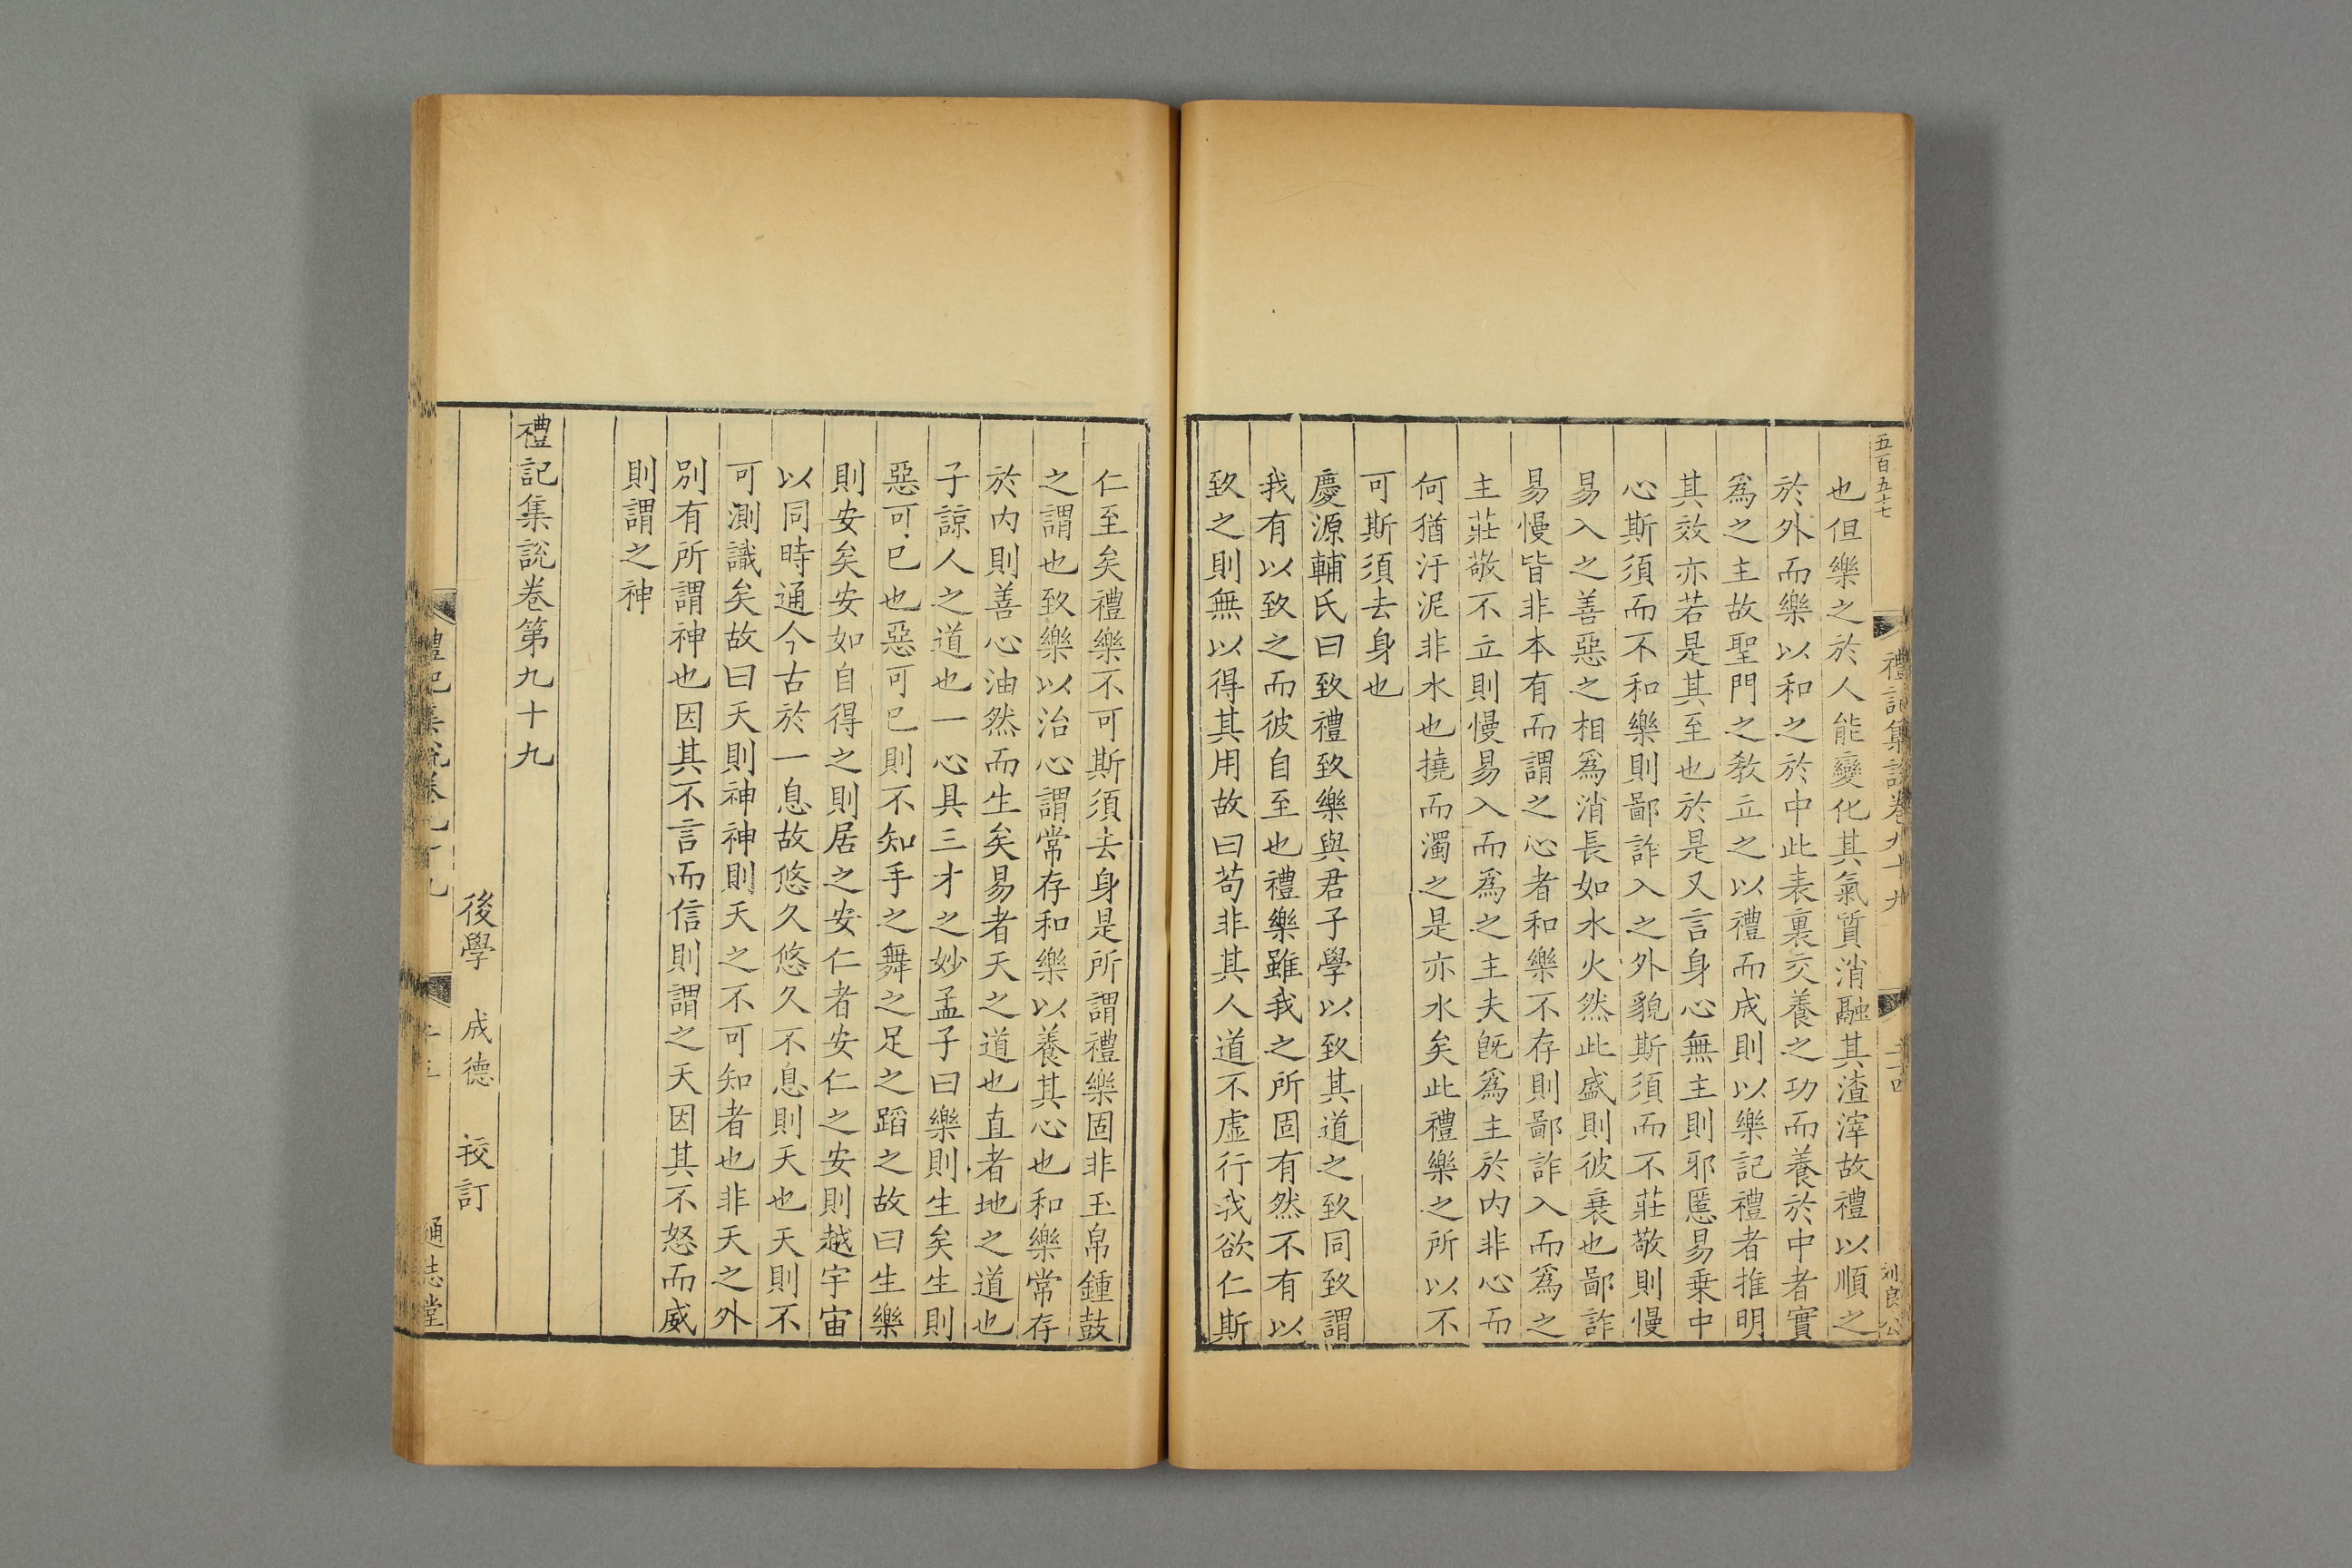 五百五十七
禮記集說卷九十九
也但樂之於人能變化其氣質消融其渣滓故禮以順之
於外而樂以和之於中此表裏交養之功而養於中者實
爲之主故聖門之教立之以禮而成則以樂記禮者推明
其效亦若是其至也於是又言身心無主則邪慝易乗中
心斯須而不和樂則鄙詐入之外貌斯須而不莊敬則慢
易入之善惡之相爲消長如水火然此盛則彼衰也鄙詐
易慢皆非本有而謂之心者和樂不存則鄙詐入而爲之
主莊敬不立則慢易入而爲之主夫旣爲主於内非心而
何猶汙泥非水也撓而濁之是亦水矣此禮樂之所以不
可斯須去身也
慶源輔氏曰致禮致樂與君子學以致其道之致同致謂
我有以致之而彼自至也禮樂雖我之所固有然不有以
致之則無以得其用故曰茍非其人道不虛行我欲仁斯
仁至矣禮樂不可斯須去身是所謂禮樂固非玉帛鍾鼓
之謂也致樂以治心謂常存和樂以養其心也和樂常存
於内則善心油然而生矣易者天之道也直者地之道也
子諒人之道也一心具三才之妙孟子曰樂則生矣生則
惡可已也惡可已則不知手之舞之足之蹈之故曰生樂
則安矣安如自得之則居之安仁者安仁之安則越宇宙
以同時通今古於一息故悠久悠久不息則天也天則不
可測識矣故曰天則神神則天之不可知者也非天之外
別有所謂神也因其不言而信則謂之天因其不怒而威
則謂之神
禮記集說卷第九十九
後學 成德 挍訂
禮記集說卷九十九
通志堂